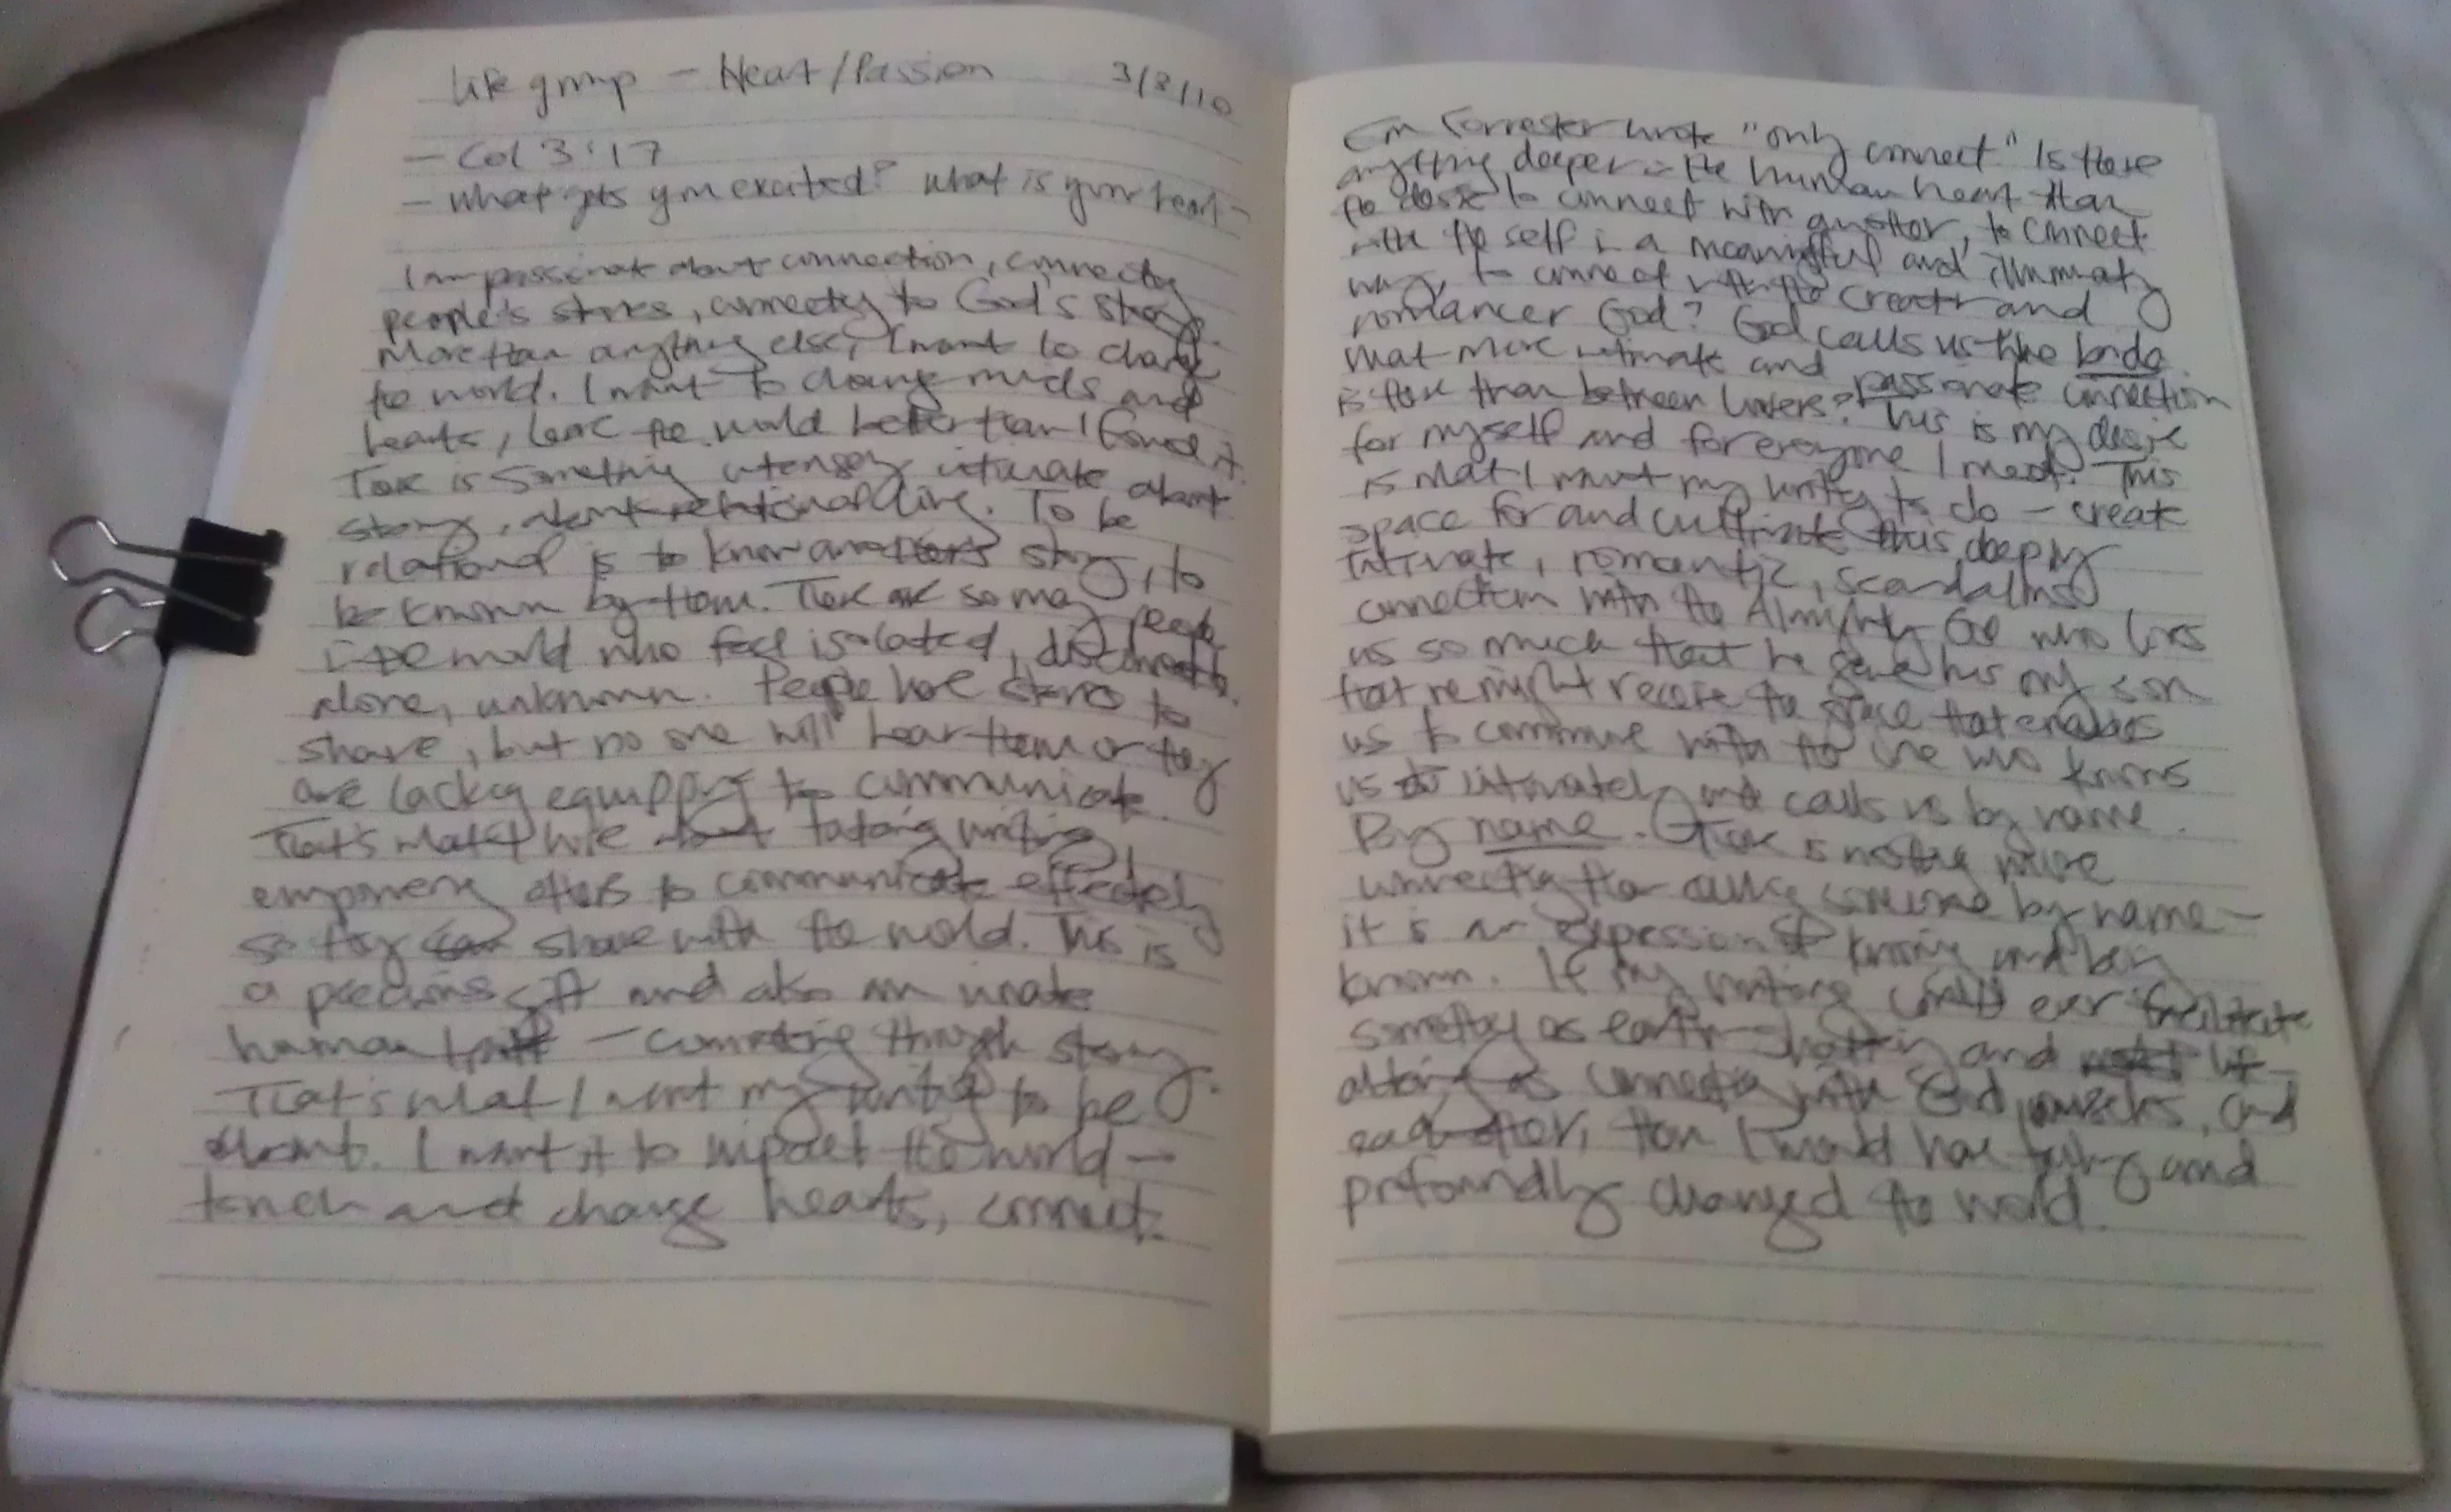 Life group - Heart/Passion 3/8/10
- Col 3:17
- What gets you excited? What is your heart -
I am passionate about connection, connecting
people's stories, connecting to God's story.
More than anything else, I want to change
the world. I want to change minds and
hearts, leave the world better than I found it.
There is something intensely intimate about
story, about relational living. To be
relational is to know another's story, to
be known by them. There are so many people
in the world who feel isolated, disconnected,
alone, unknown. People have stories to
share, but no one will hear them or they
are lacking equipping to communicate.
That's what I love about writing,
empowering others to communicate effectively
so they can share with the world. This is
a precious gift and also an innate
human - connecting through story.
That's what I want my writing to be
about. I want it to impact the world -
touch and change hearts, connect.
Em Forrester wrote "only connect." Is there
anything deeper in the human heart than
the desire to connect with another, to connect
with the self in a meaningful and illuminating
way, to connect with the creator and
romancer God? God calls us the bride.
What more intimate and passionate connection
is there than between lovers? This is my desire
for myself and for everyone I meet. This
is what I want my writing to do - create
space for and cultivate this deeply
intimate, romantic, scandalous
connection with the Almighty God who loves
us so much that he gave his only son
that we might receive the grace that enables
us to commune with the one who knows
us intimately and calls us by name.
By name. There is nothing more
connecting than calling someone by name -
it is an expression of knowing and being
known. If my writing could ever facilitate
something as earth-shattering and life
altering as connecting with God, ourselves, and
each other, then I would have truly and
profoundly changed the world.